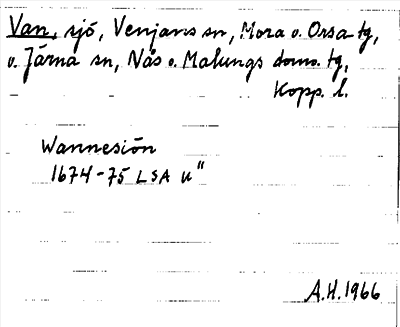 Van, sjö, Venjans sn, Mora o. Orsa tg,
o. Järna sn, Nås o. Malungs doms. tg,
Kopp. l.
Wannesiön
1674-75 LSA u"
A.H. 1966